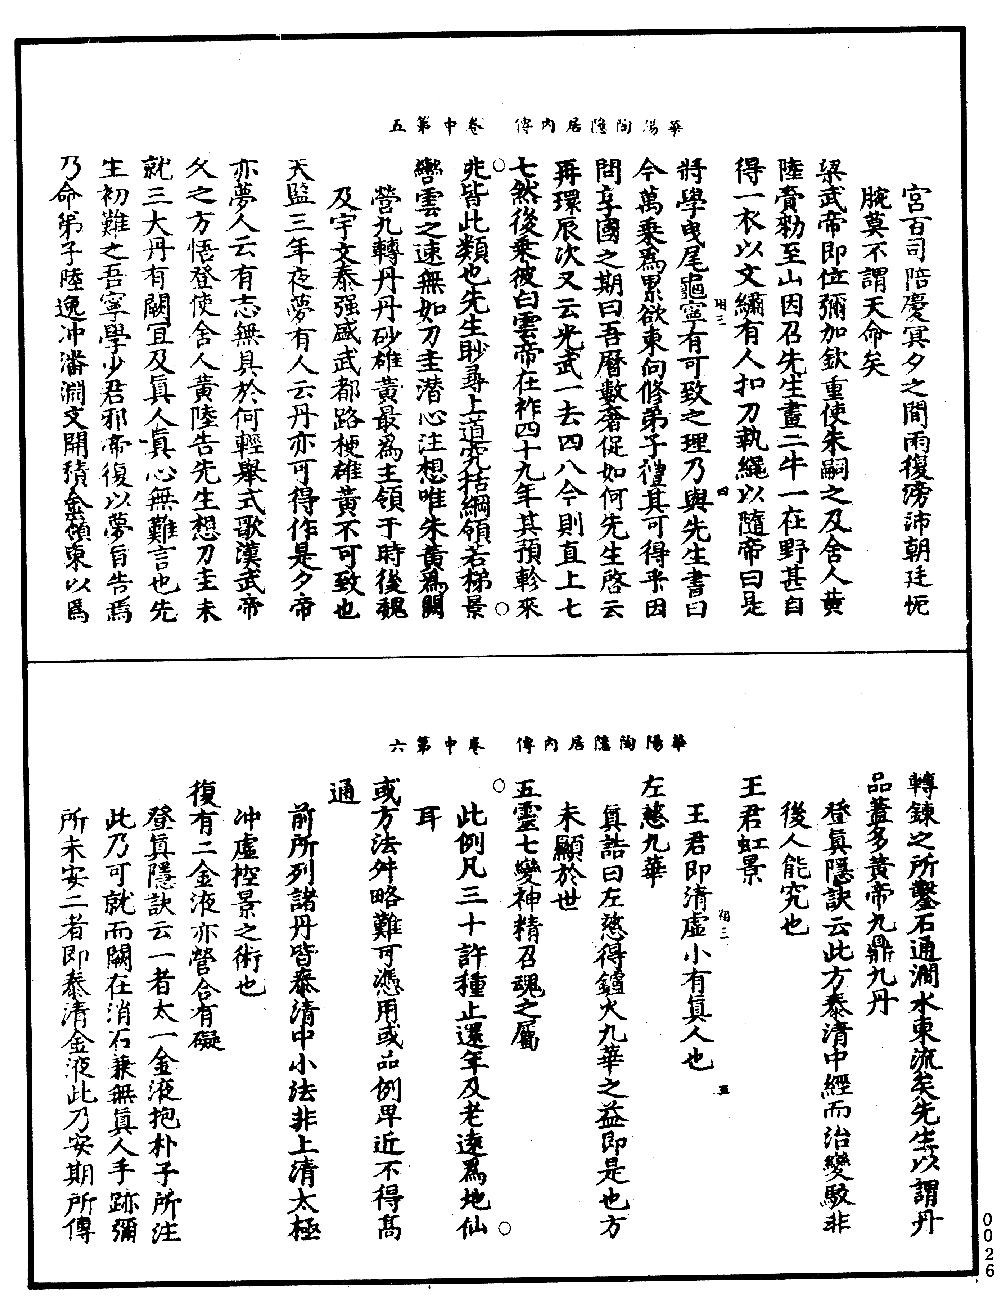 華陽陶隱居內傳 卷中第五
宮百司陪慶冥夕之間雨復滂沛朝廷怃
腕莫不謂天命矣
梁武帝即位彌加欽重使朱嗣之及舍人黃
陸賚勑至山因召先生畫二牛一在野甚自
得一衣以文繡有人扣刀執繩以隨帝曰是
將學曳尾龜寧有可致之理乃與先生書曰
今萬乘為累欲東向修弟子禮其可得乎因
問享國之期曰吾曆數奢促如何先生啓云
再環辰次又云光武一去四八今則直上七
七然後乘彼白雲帝在祚四十九年其預軫來
兆皆此類也先生眇尋上道究括綱領若梯景
轡雲之速無如刀圭潛心注想唯朱黃爲闕
營九轉丹丹砂雄黃最為主領于時後魏
及宇文泰强盛武都路梗雄黃不可致也
天監三年夜夢有人云丹亦可得作是夕帝
亦夢人云有志無具於何輕舉式歌漢武帝
久之方悟登使舍人黃陸告先生想刀圭未
就三大丹有闕宜及真人真心無難言也先
生初難之吾寧學少君邪帝復以夢旨告焉
乃命弟子陸逸冲潘淵文開積金嶺東以爲
相三
四
華陽陶隱居內傳 卷中第六
轉鍊之所鑿石通澗水東流矣先生以謂丹
品蓋多黃帝九鼎九丹
登真隱訣云此方泰清中經而治變駮非
後人能究也
王君虹景
王君即清虛小有真人也
左慈九華
真誥曰左慈得鑪火九華之益即是也方
未顯於世
五靈七變神精召魂之屬
此例凡三十許種止還年及老遠爲地仙
耳
或方法舛略難可憑用或品例卑近不得高
通
前所列諸丹皆泰清中小法非上清太極
冲虛控景之術也
復有二金液亦營合有礙
登真隱訣云一者太一金液抱朴子所注
此乃可就而闕在消石兼無真人手跡彌
所未安二者即泰清金液此乃安期所傳
相三
五
0026